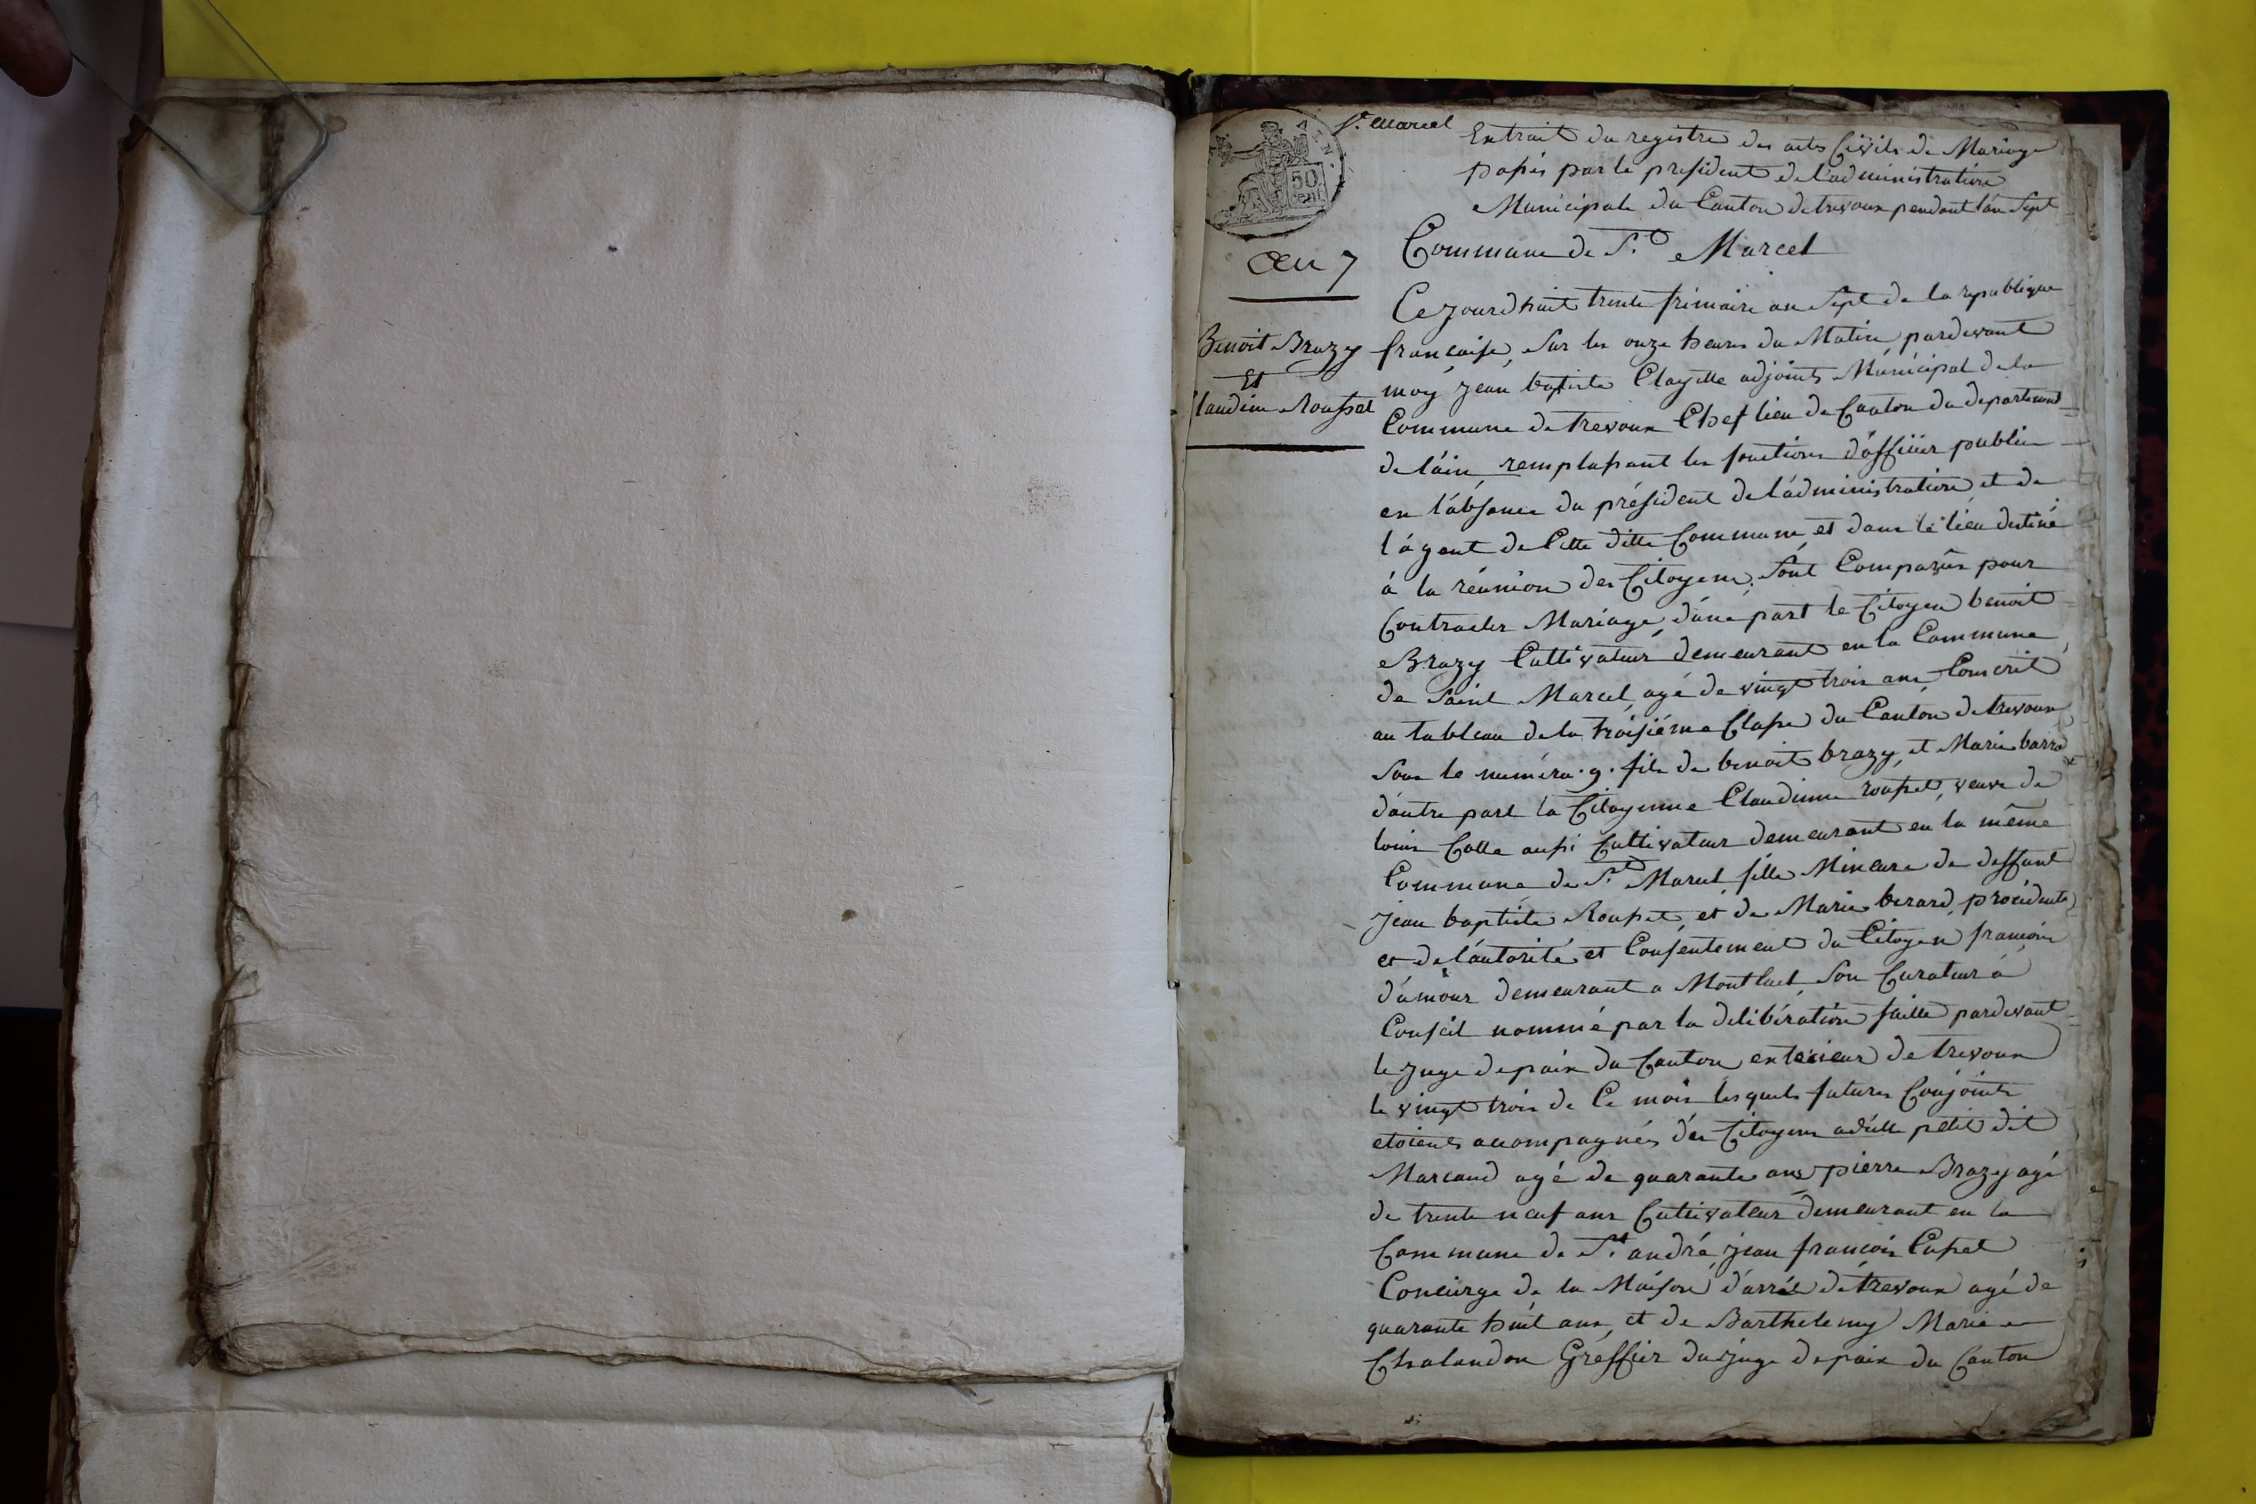 St. Marcel
50
cent
Extrait du registre des actes Civils de Mariage
passés par le president de l'administration
Municipale du Canton de trevoux pendant l'an Sept
Commune de St. Marcel
an 7
Benoit Brazy
Et
Claudine Rousset
Ce jourdhuit trente frimaire an Sept de la republique
francaise, Sur les onze heures du Matin, pardevant
moy jean baptiste Clayette adjoint Municipal de la
Commune de trevoux Chef lieu de Canton du departement
de l'ain, remplassant les fonctions d'officier public
en l'absance du président de l'administration et de
l'agent de Cette ditte Commune, et dans le lieu destiné
à la réunion des Citoyens. Sont Comparûs pour
Contracter Mariage, d'une part le Citoyen benoit
Brazy Cultivateur demeurant en la Commune
de Saint Marcel, agé de vingt trois ans Conscrit
au tableau de la troisiéme Classe du Canton de trevoux
Sous le numéro .9. fils de benoit brazy, et Marie barra
d'autre part la Citoyenne Claudinne rousset, veuve de
louis Colle aussi Cultivateur demeurant en la même
Commune de St. Marcel fille Mineure de deffunt
jean baptiste Rousset, et de Marie berard, procédante
et de l'autorité et Consentement du Citoyen francois
d'amour demeurant a Montluel, Son Curateur à
Conseil nommé par la delibération faitte pardevant
le juge de paix du Canton exterieur de trevoux
le vingt trois de Ce mois lesquels futures Conjoints
etoients accompagnés des Citoyens petit dit
Marcand agé de quarante ans pierre Brazy agé
de trente neuf ans Cultivateur demeurant en la
Commune de St. andré, jean francois Casset
Concierge de la Maison d'arrêt de trevoux agé de
quarante huit ans, et de Barthelemy Marie
Chalandon Greffier du juge de paix du Canton